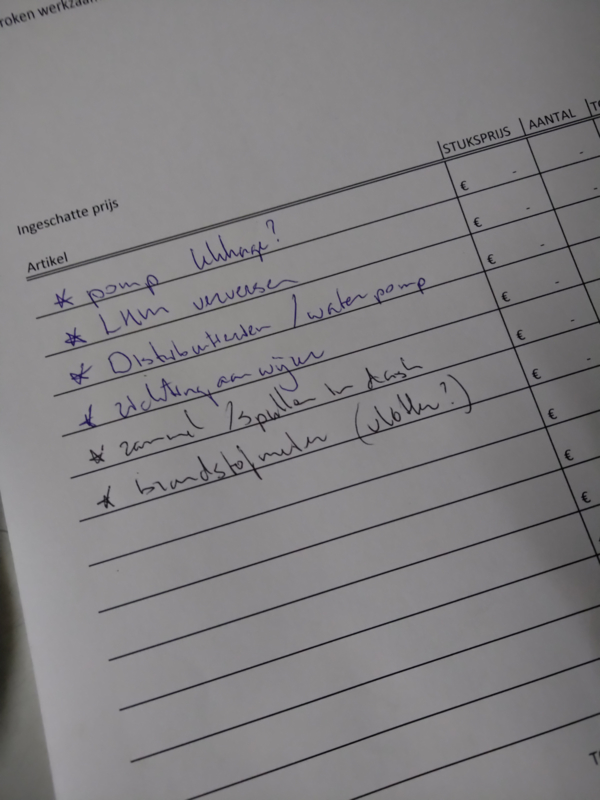 roken werkzaam
Ingeschatte prijs
Artikel STUKSPRIJS AANTAL TO
* pomp lekkage? € -
* LHM verversen € -
* Distributieriem / waterpomp € -
* richtingaanwijzer € -
* rammel / spullen in dash € -
* brandstofmeter (vlotter?) € -
€
€
€